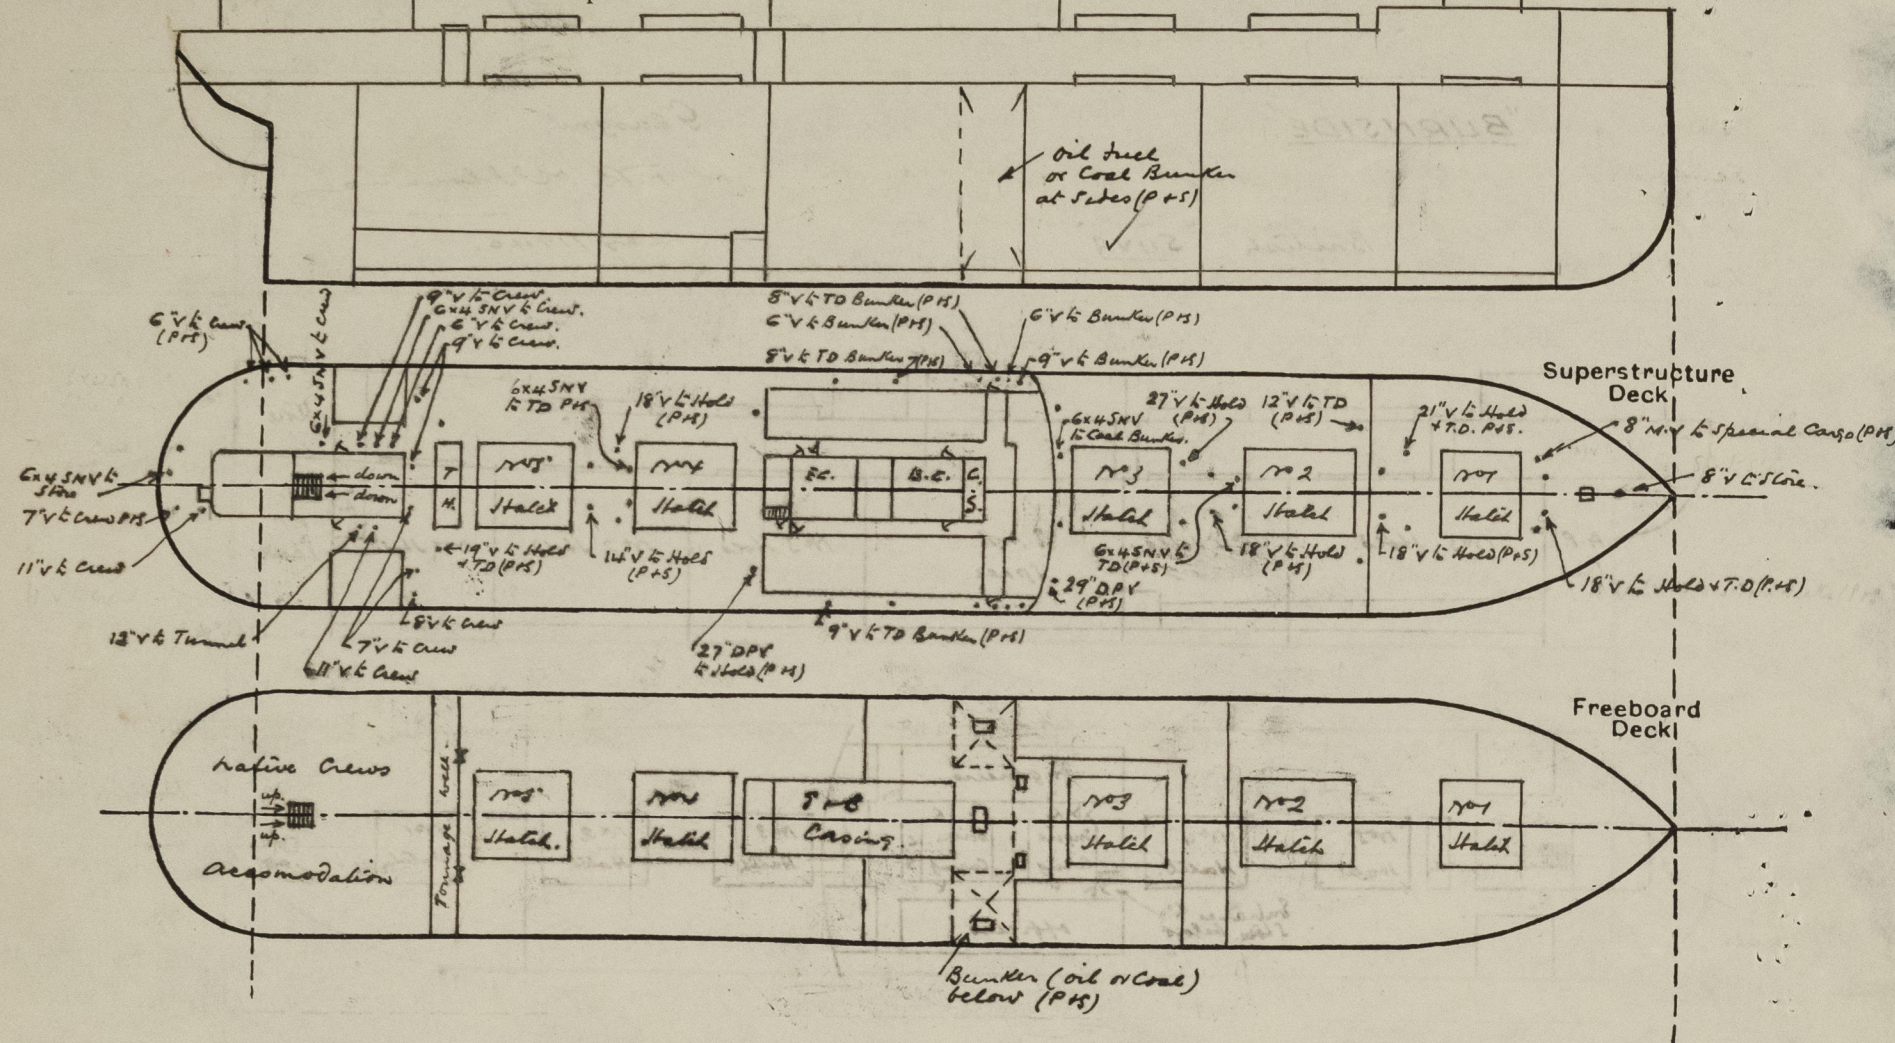 "BURNSIDE"
oil fuel
or Coal Bunker
at Sides (P+S)
6"V to Crew
(P+S)
6x4 SNV to Crew
9"V to Crew.
6x4 SNV to Crew.
6"V to Crew.
9"V to Crew.
8"V to TD Bunker (P+S)
6"V to Bunker (P+S)
8"V to TD Bunker (P+S)
6"V to Bunker (P+S)
9"V to Bunker (P+S)
Superstructure
Deck
6x4 SNV
to TD P+S
18"V to Hold
(P+S)
6x4 SNV
to Coal Bunker.
27"V to Hold
(P+S)
12"V to TD
(P+S)
21"V to Hold
+ T.D. P+S.
8"M.V to Special Cargo (P+S)
8"V to Store.
6x4 SNV to
Store
7"V to Crew P+S
11"V to Crew
down
down
T
H.
No5
Hatch
No4
Hatch
E.C.
B.C.
C.
S.
No 3
Hatch
No 2
Hatch
No1
Hatch
19"V to Hold
+ T.D (P+S)
14"V to Hold
(P+S)
6x4 SNV to
TD (P+S)
18"V to Hold
(P+S)
18"V to Hold (P+S)
18"V to Hold + T.D (P+S)
29" DPV
(P+S)
12"V to Tunnel
8"V to Crew
7"V to Crew
11"V to Crew
27" DPV
to Hold (P+S)
9"V to TD Bunker (P+S)
Freeboard
Deck
Native Crews
up.
up.
Accomodation
Tonnage well.
No5
Hatch.
No4
Hatch
E+B
Casing.
No3
Hatch
No2
Hatch
No1
Hatch
Bunker (oil or Coal)
below (P+S)